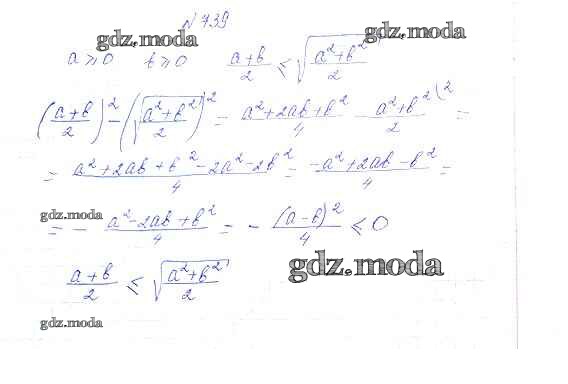 № 739
gdz.moda
gdz.moda
a ≥ 0 b ≥ 0 (a+b)/2 ≤ √((a²+b²)/2)
((a+b)/2)² - (√((a²+b²)/2))² = (a²+2ab+b²)/4 - (a²+b²)/2 (2 =
= (a²+2ab+b²-2a²-2b²)/4 = (-a²+2ab-b²)/4 =
gdz.moda
= - (a²-2ab+b²)/4 = - (a-b)²/4 ≤ 0
gdz.moda
(a+b)/2 ≤ √((a²+b²)/2)
gdz.moda